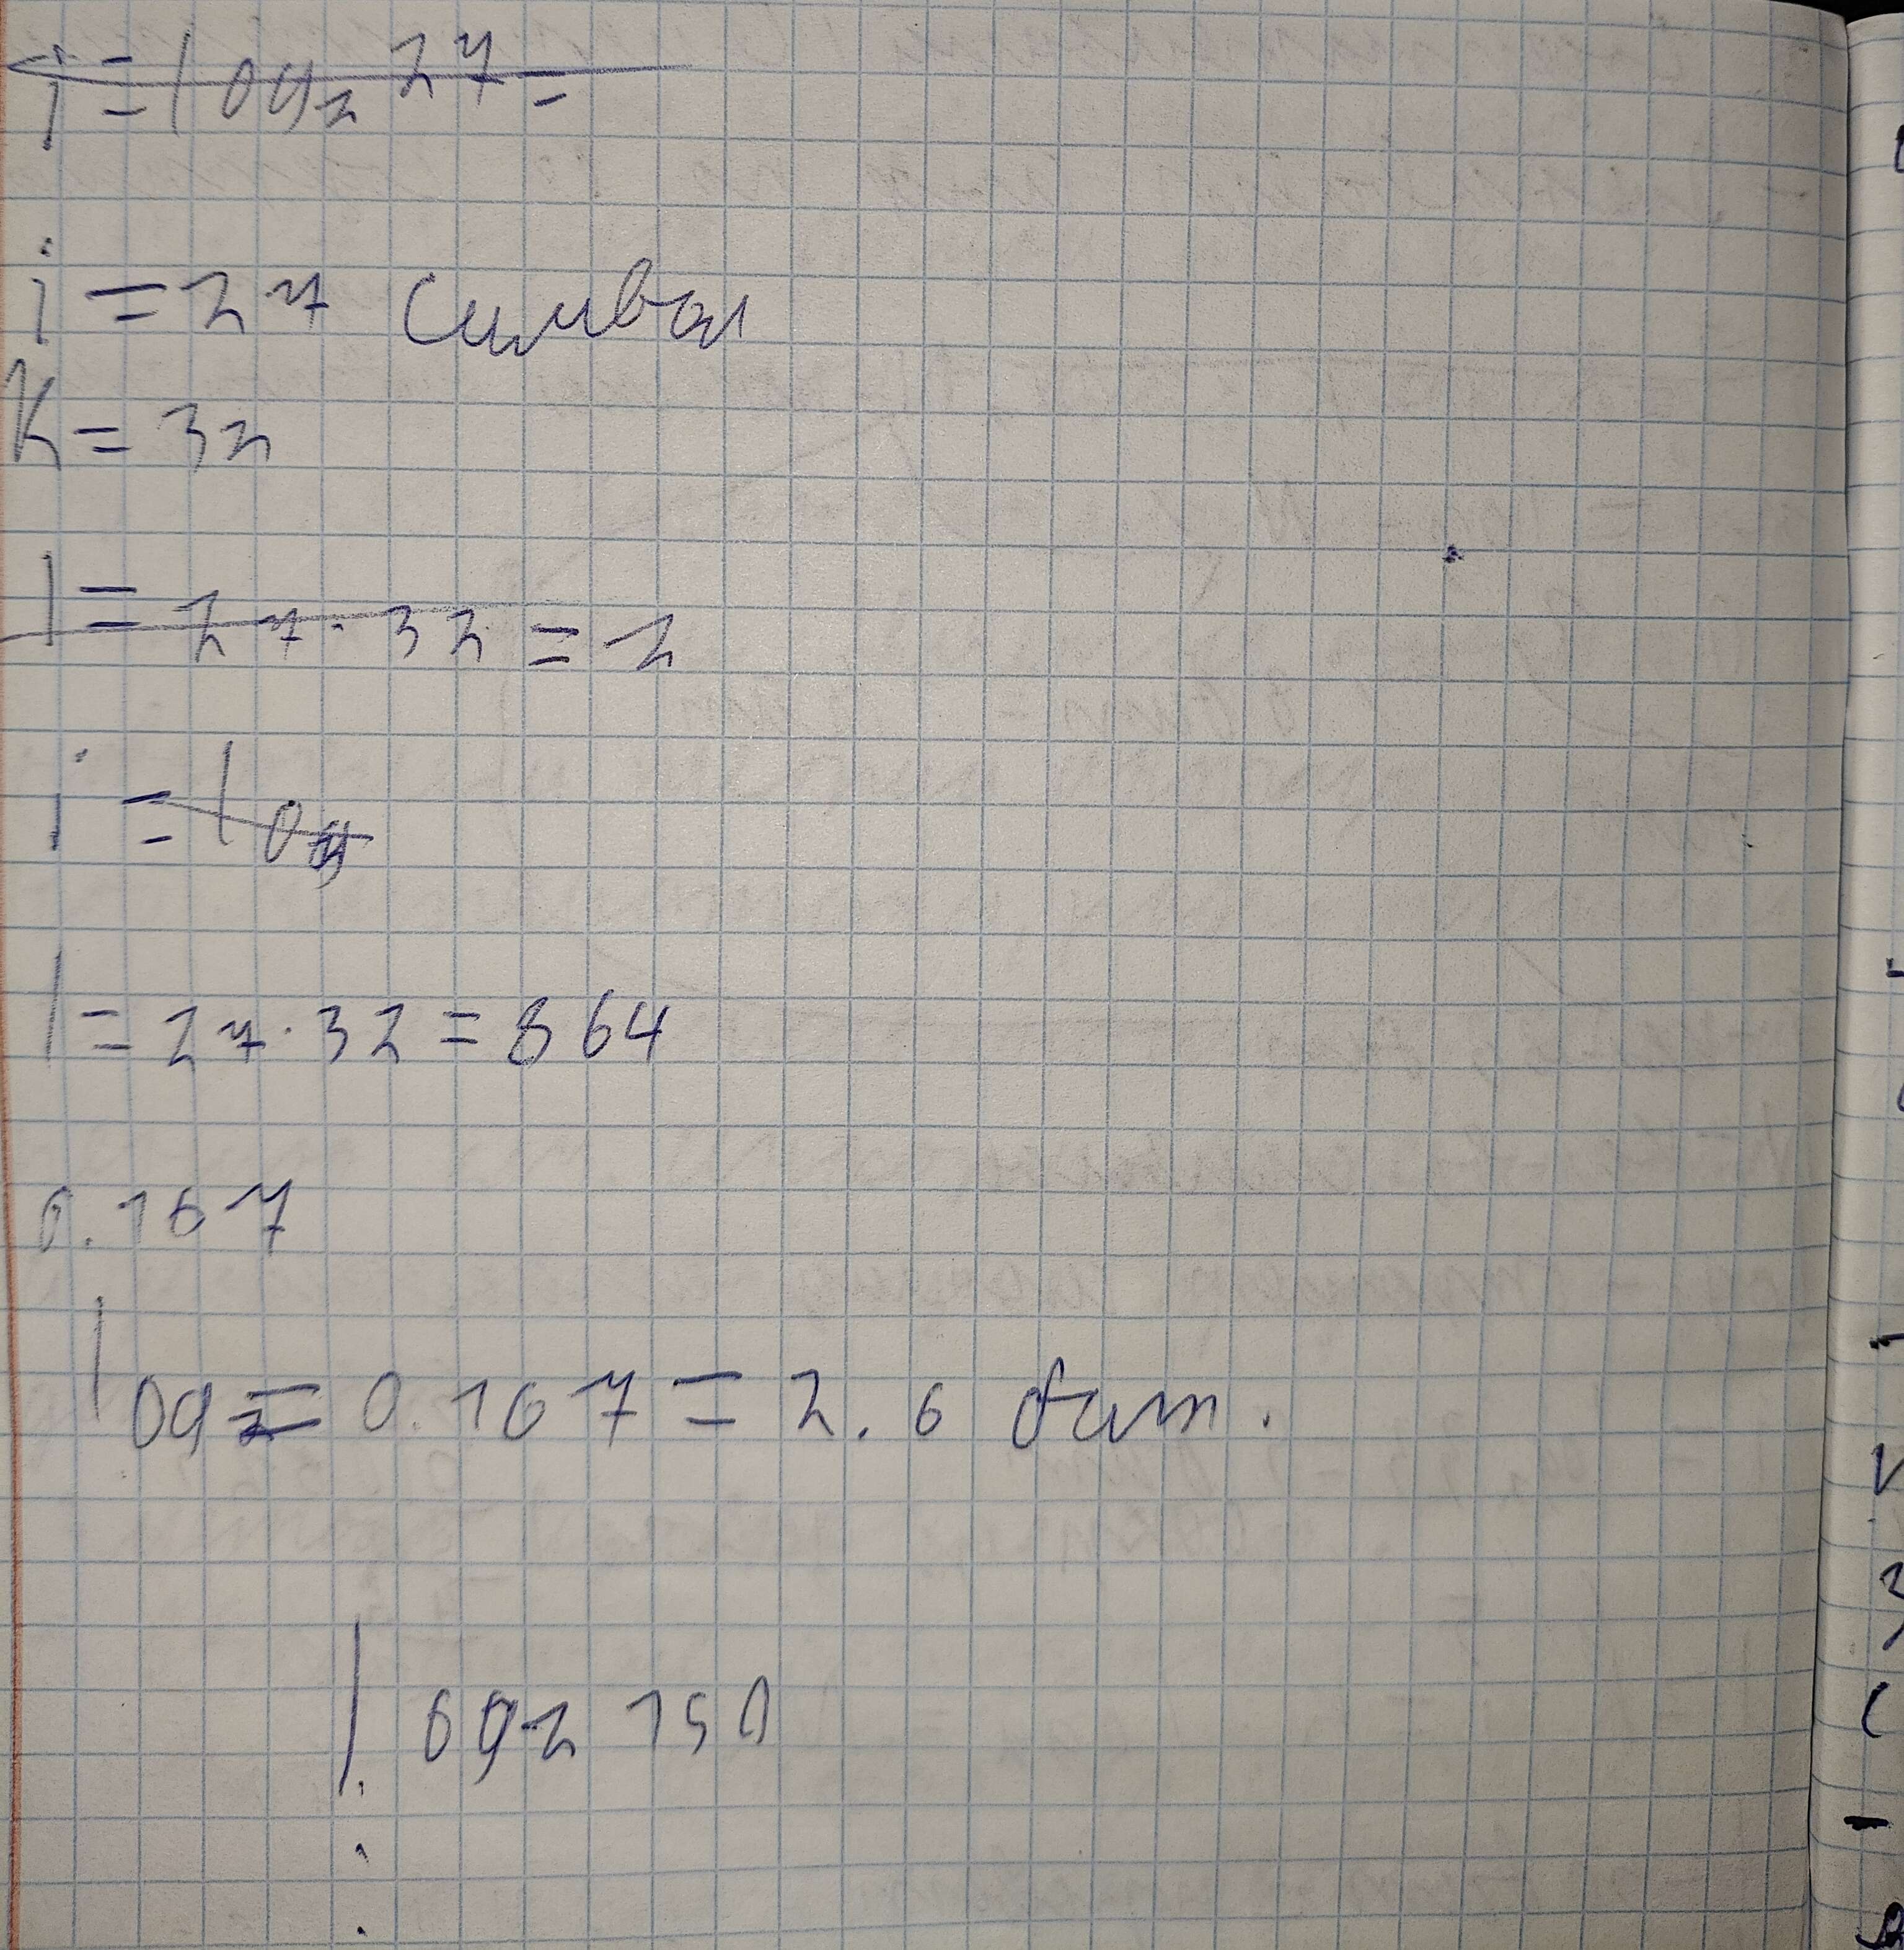 i = log₂ 27 =
i = 27 символ
K = 32
I = 27 · 32 = 2
i = log
I = 27 · 32 = 864
0.167
log₂ = 0.167 = 2.6 бит.
log₂ 150